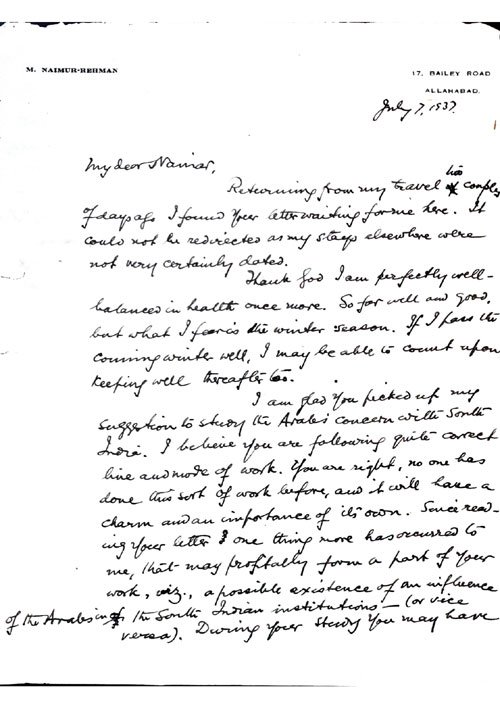 M. NAIMUR-REHMAN
17, BAILEY ROAD
ALLAHABAD.
July 7, 1937.
My dear Nainar,
Returning from my travel couple
of days ago I found your letter waiting for me here. It
could not be redirected as my stays elsewhere were
not very certainly dated.
Thank God I am perfectly well-
balanced in health once more. So far well and good,
but what I fear is the winter season. If I pass the
coming winter well, I may be able to count upon
keeping well thereafter too.
I am glad you picked up my
suggestion to study the Arabs' concern with South
India. I believe you are following quite correct
line and mode of work. You are right, no one has
done this sort of work before, and it will have a
charm and an importance of its own. Since read-
ing your letter one thing more has occurred to
me, that may profitably form a part of your
work, viz., a possible existence of an influence
of the Arabs in the South Indian institutions — (or vice
versa). During your study you may have